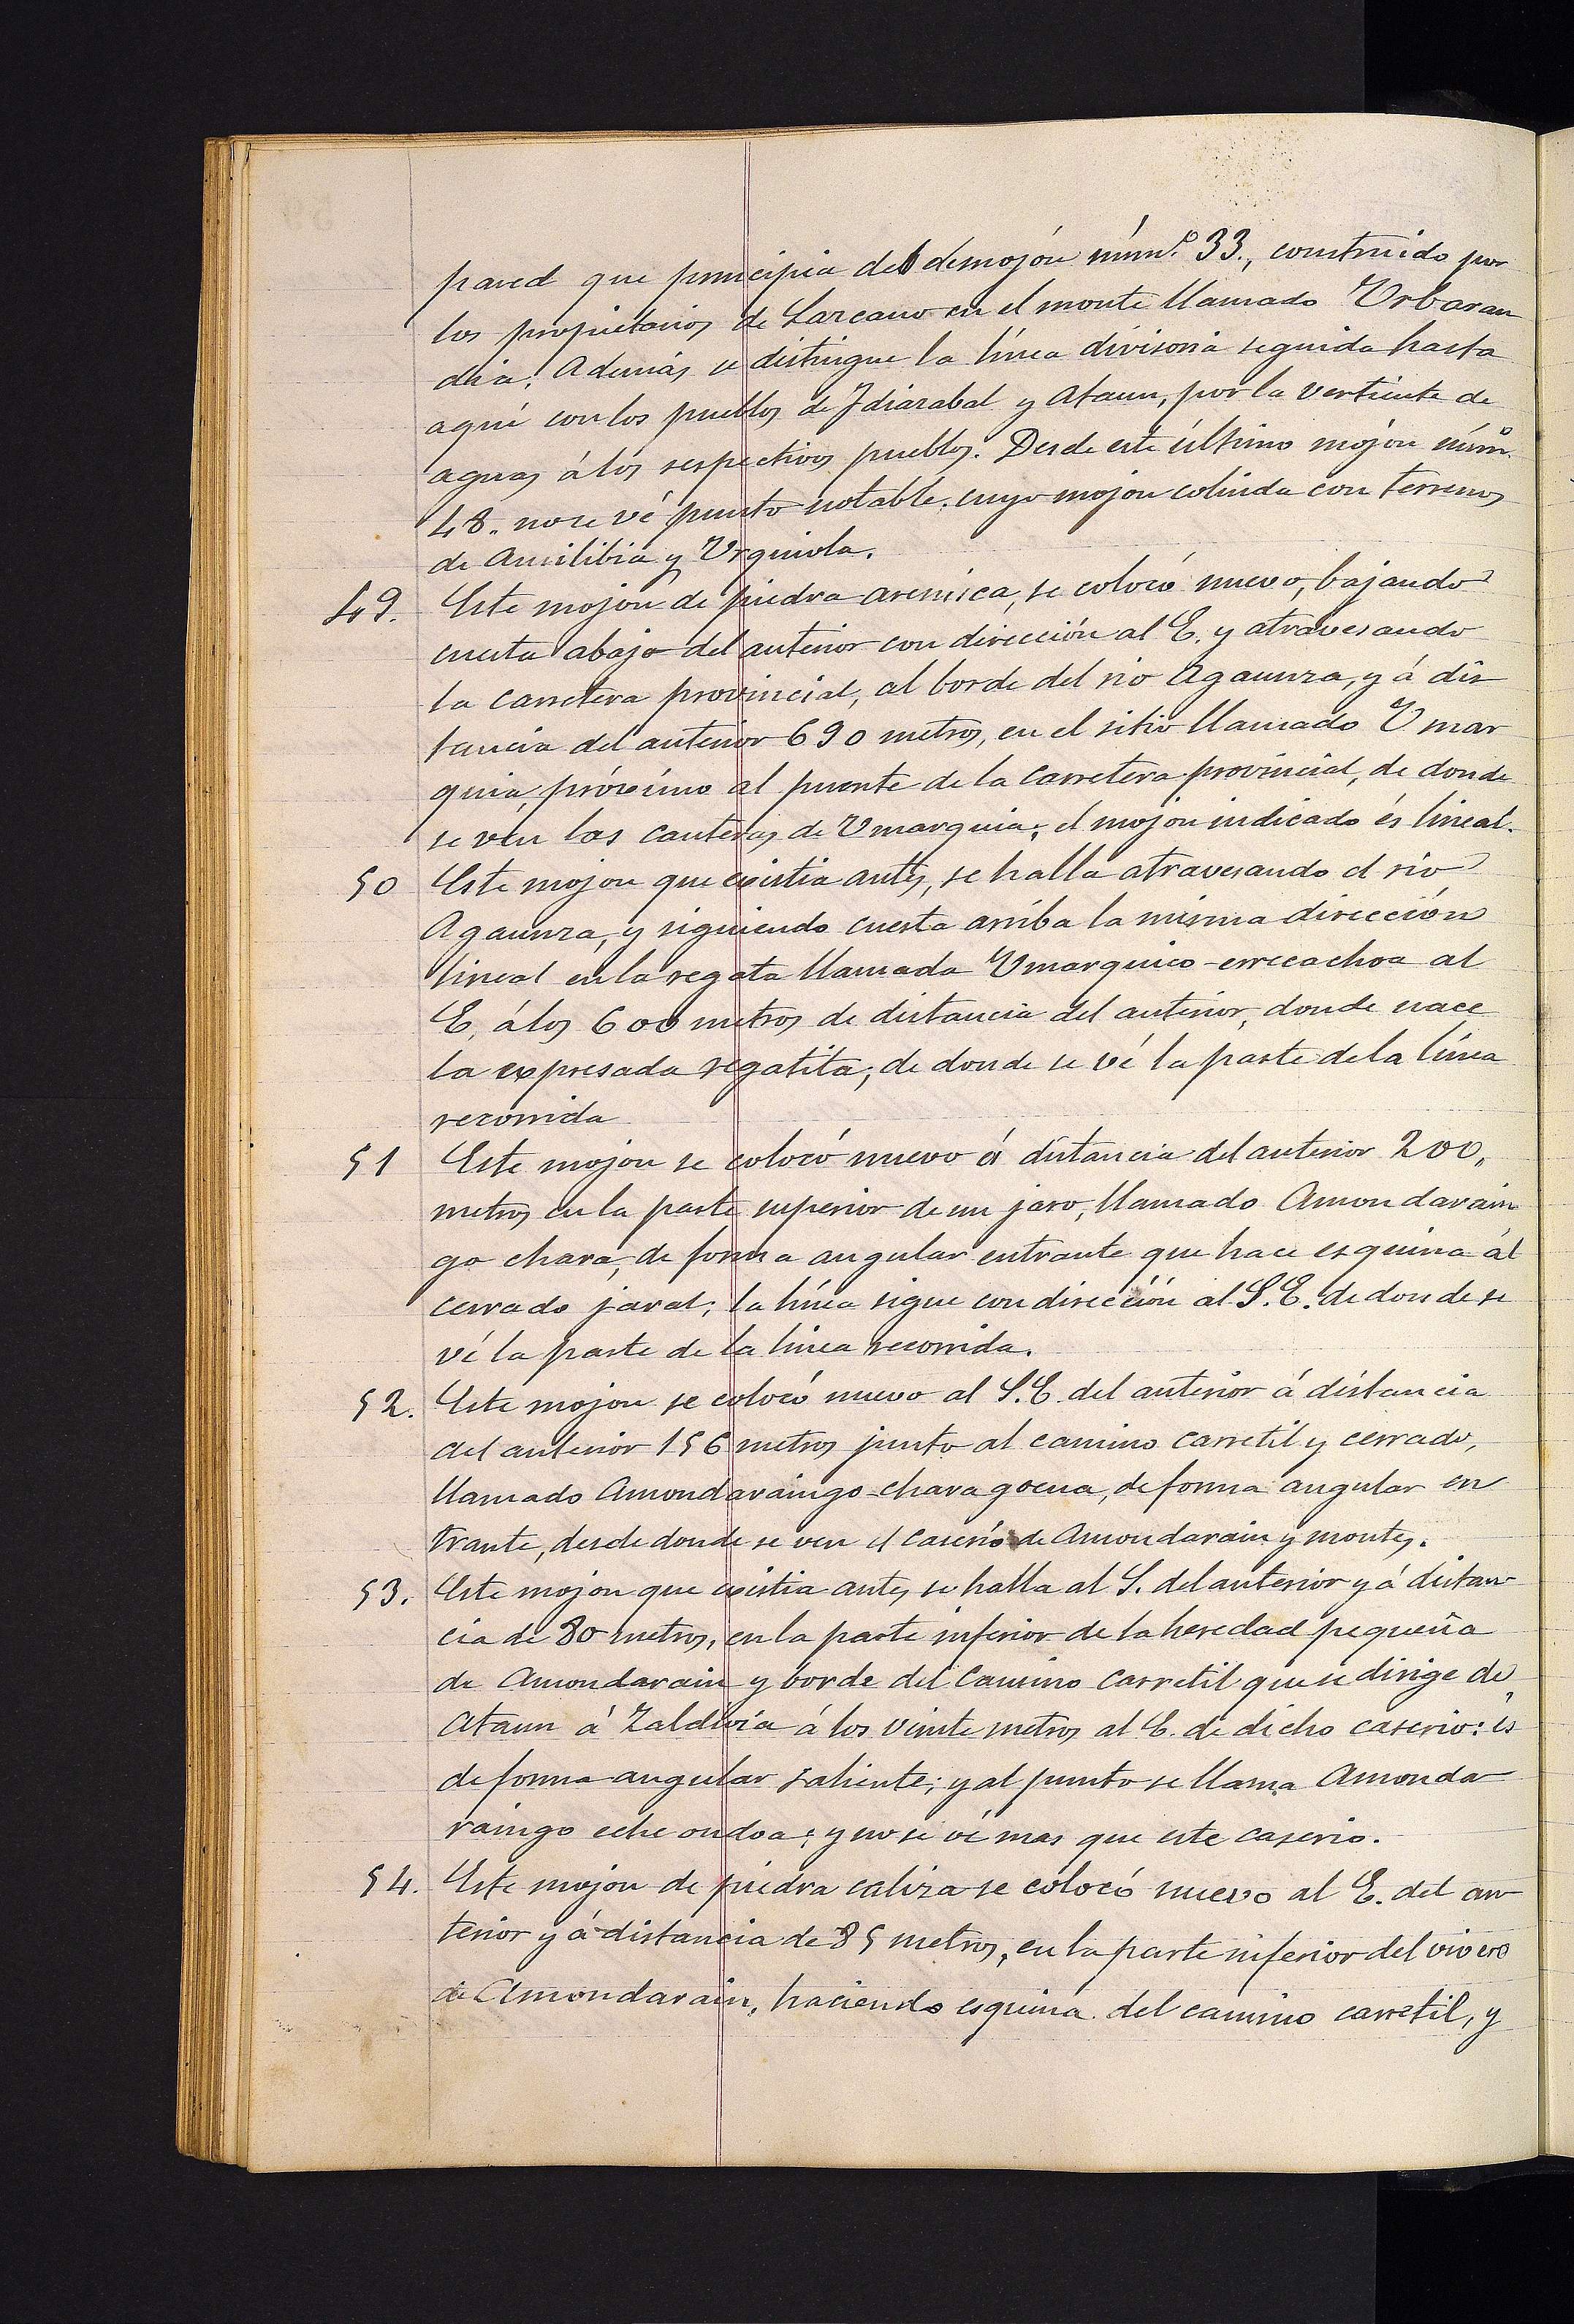 pared que principia del demojón núm.º 33., construido por
los propietarios de Lazcano en el monte llamado Urbaran
dia; Además se distingue la línea divisoria seguida hasta
aquí con los pueblos de Idiazabal y Ataun, por la vertiente de
aguas á los respectivos pueblos. Desde este último mojón núm.º
48. no se vé punto notable, cuyo mojon colinda con terrenos
de Amilibia y Urquiola.
49. Este mojon de piedra arenisca, se colocó nuevo, bajando
cuesta abajo del anterior con dirección al E. y atravesando
la carretera provincial, al borde del rio Agaunza, y á dis
tancia del anterior 690 metros, en el sitio llamado Umar
quia, próximo al puente de la carretera provincial, de donde
se ven las canteras de Umarquia; el mojon indicado és lineal.
50 Este mojon que existia antes, se halla atravesando el rio
Agaunza, y siguiendo cuesta arriba la misma dirección
lineal en la regata llamada Umarquico-errecachoa al
E. á los 600 metros de distancia del anterior, donde nace
la expresada regatita; de donde se vé la parte de la línea
recorrida
51 Este mojon se colocó nuevo á distancia del anterior 200,,
metros en la parte superior de un jaro, llamado Amondarain
go chara, de forma angular entrante que hace esquina ál
cerrado jaral; la línea sigue con dirección al S.E. de donde se
vé la parte de la linea recorrida.
52. Este mojon se colocó nuevo al S.E. del anterior á distancia
del anterior 156 metros junto al camino carretil y cerrado,
llamado Amondaraingo-chara goena, de forma angular en
trante, desde donde se ven el caserío de Amondarain y montes.
53. Este mojon que existia antes se halla al S. del anterior y á distan
cia de 80 metros, en la parte inferior de la heredad pequeña
de Amondarain y borde del camino carretil que se dirige de
Ataun á Zaldivia á los veinte metros al E. de dicho caserio: és
de forma angular saliente; y al punto se llama Amonda
raingo eche ondoa; y no se vé mas que este caserio.
54. Este mojon de piedra caliza se colocó nuevo al E. del an
terior y á distancia de 85 metros, en la parte inferior del vivero
de Amondarain, haciendo esquina del camino carretil, y